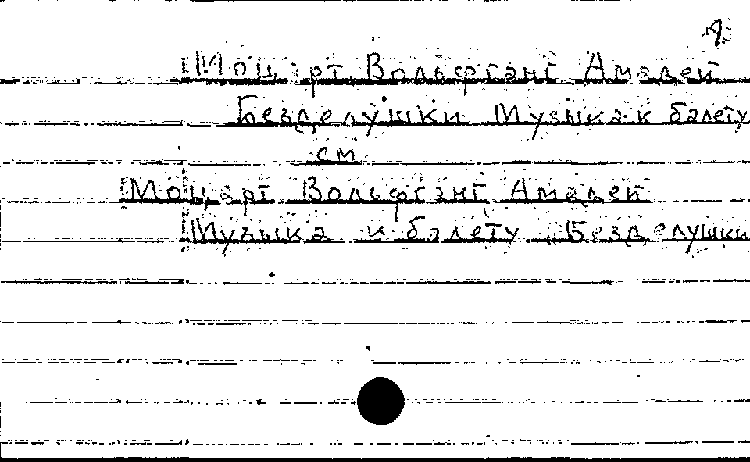 Моцарт Вольфганг Амадей
Безделушки Музыка к балету
см
Моцарт Вольфганг Амадей
Музыка к балету „Безделушки